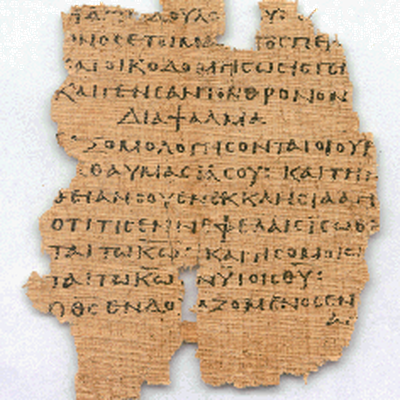 ΔΟΥΛΩ
ΝΟΣ ΕΤΟΙΜΑ ΤΟ ΣΠΕΡ
ΚΑΙ ΟΙΚΟΔΟΜΗΣΩ ΕΙΣ ΓΕ
ΚΑΙ ΓΕΝΕΑΝ ΤΟΝ ΘΡΟΝΟΝ
ΔΙΑΨΑΛΜΑ
ΞΟΜΟΛΟΓΗΣΟΝΤΑΙ ΟΙ ΟΥΡ
ΘΑΥΜΑΣΙΑ ΣΟΥ: ΚΑΙ ΤΗΝ
ΘΕΙΑΝ ΣΟΥ ΕΝ ΕΚΚΛΗΣΙΑ ΑΓΙ
ΟΤΙ ΤΙΣ ΕΝ ΝΕΦΕΛΑΙΣ ΙΣΩΘ
ΤΑΙ ΤΩ Κ̅Ω̅ ΚΑΙ ΤΙΣ ΟΜΟΙΩ
ΤΑΙ ΤΩ Κ̅Ω̅ ΕΝ ΥΙΟΙΣ Θ̅Υ̅:
Ο Θ̅Σ̅ ΕΝΔΟΞΑΖΟΜΕΝΟΣ ΕΝ